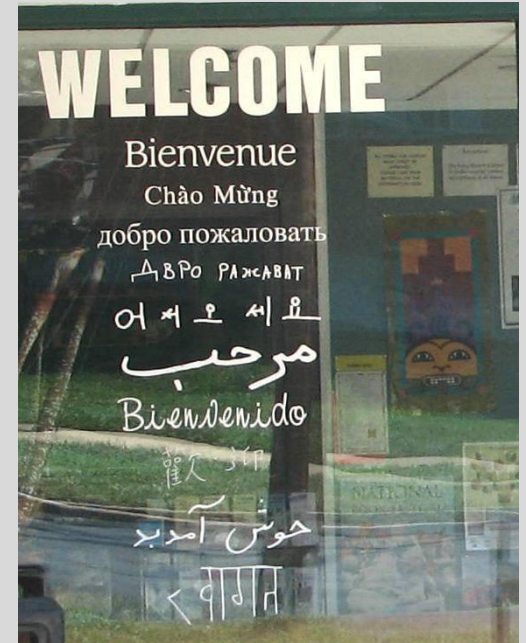 WELCOME
Bienvenue
Chào Mừng
добро пожаловать
ДВРО РАЖАВАТ
어서오세요
مرحب
Bienvenido
歡迎
خوش آمدید
स्वागत
NATIONAL